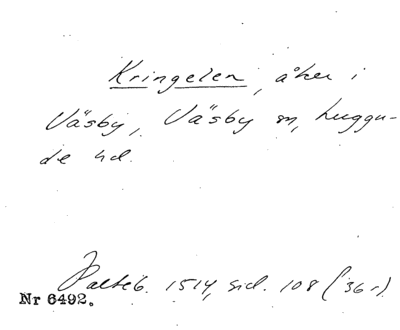 Kringelen, åker i
Väsby, Väsby sn, Luggu-
de hd.
Paltsb. 1514, sid. 108 (36 r)
Nr 6492.